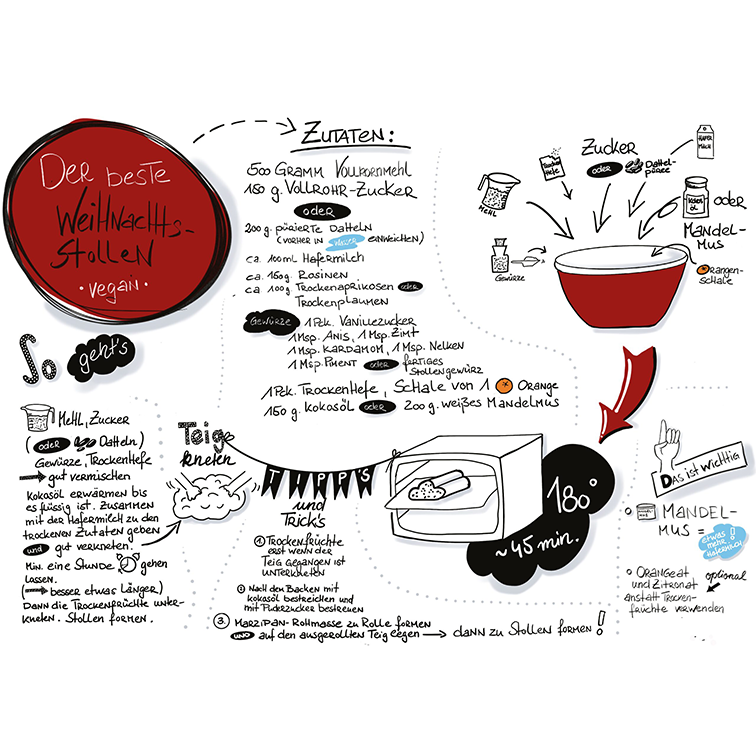 Der beste
Weihnachts-
stollen
• vegan •
Zutaten:
500 Gramm Vollkornmehl
150 g. Vollrohr-Zucker
oder
200 g. pürierte Datteln
(vorher in Wasser einweichen)
ca. 100 ml Hafermilch
ca. 150g Rosinen
ca. 100g Trockenaprikosen oder
Trockenpflaumen
Gewürze 1 Pck. Vanillezucker
1 Msp. Anis, 1 Msp. Zimt
1 Msp. Kardamom, 1 Msp. Nelken
1 Msp. Piment oder fertiges
Stollengewürz
1 Pck. Trockenhefe, Schale von 1 Orange
150 g. Kokosöl oder 200 g. weißes Mandelmus
Zucker
oder Dattel-
püree
Hafer
Milch
Hefe
Mehl
Kokos
öl
oder
Mandel-
mus
Gewürze
Orangen-
schale
So geht's
Mehl, Zucker
(oder Datteln)
Gewürze, Trockenhefe
gut vermischen
Kokosöl erwärmen bis
es flüssig ist. Zusammen
mit der Hafermilch zu den
trockenen Zutaten geben
und gut verkneten.
Min. eine Stunde gehen
lassen.
(besser etwas länger)
Dann die Trockenfrüchte unter-
kneten. Stollen formen.
Teig
kneten
TIPP'S
und
Trick's
1 Trockenfrüchte
erst wenn der
Teig gegangen ist
unterkneten
2 Nach dem Backen mit
Kokosöl bestreichen und
mit Puderzucker bestreuen
3. Marzipan-Rohmasse zu Rolle formen
und auf den ausgerollten Teig legen → dann zu Stollen formen!
180°
~ 45 min.
Das ist wichtig
• Mandel-
mus =
etwas
mehr
Hafermilch!
• Orangeat optional
und Zitronat
anstatt Trocken-
früchte verwenden